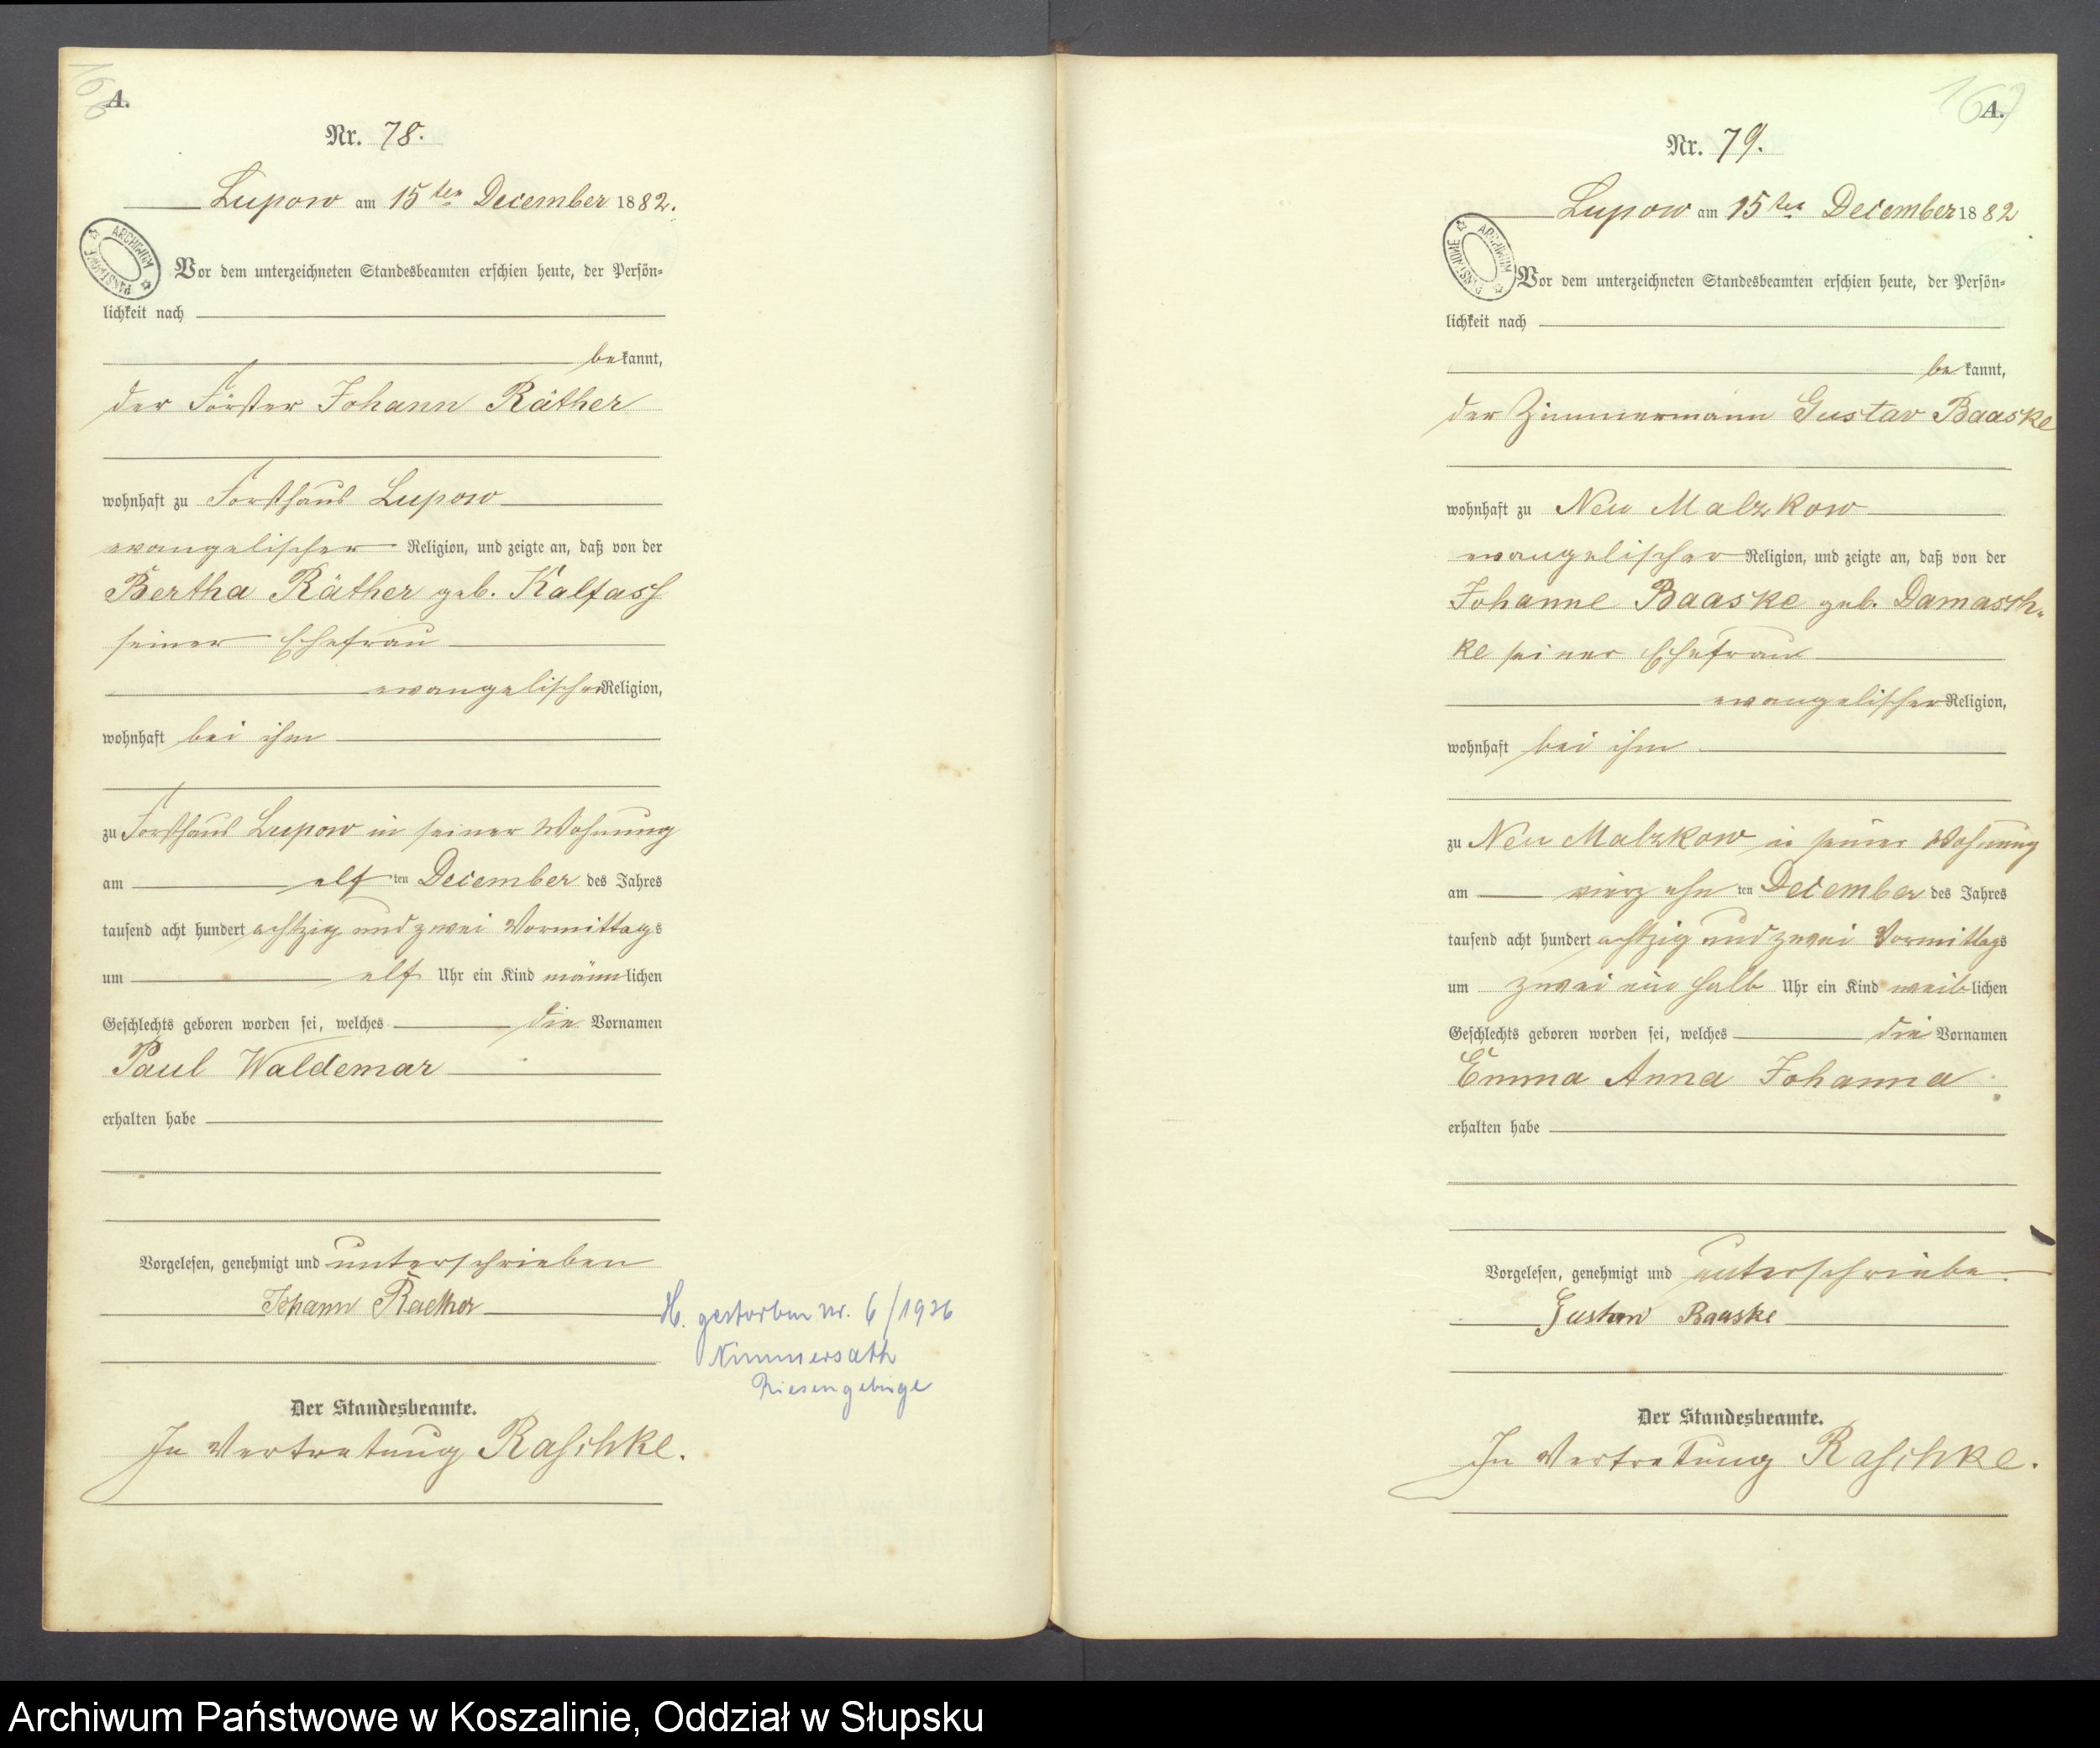 166
A.
Nr. 78.
Lupow am 15ten December 1882.
ARCHIWUM PAŃSTWOWE
Vor dem unterzeichneten Standesbeamten erschien heute, der Persön-
lichkeit nach
bekannt,
der Förster Johann Räther
wohnhaft zu Forsthaus Lupow
evangelischer Religion, und zeigte an, daß von der
Bertha Räther geb. Kalfass
seiner Ehefrau
evangelischer Religion,
wohnhaft bei ihm
zu Forsthaus Lupow in seiner Wohnung
am elf ten December des Jahres
tausend acht hundert achtzig und zwei Vormittags
um elf Uhr ein Kind männlichen
Geschlechts geboren worden sei, welches die Vornamen
Paul Waldemar
erhalten habe
Vorgelesen, genehmigt und unterschrieben
Johann Raether
H. gestorben Nr. 6/1936
Nimmersath
Riesengebirge
Der Standesbeamte.
In Vertretung Raschke.
167
A.
Nr. 79.
Lupow am 15ten December 1882
ARCHIWUM PAŃSTWOWE
Vor dem unterzeichneten Standesbeamten erschien heute, der Persön-
lichkeit nach
bekannt,
der Zimmermann Gustav Baaske
wohnhaft zu Neu Malzkow
evangelischer Religion, und zeigte an, daß von der
Johanne Baaske geb. Damasch-
ke seiner Ehefrau
evangelischer Religion,
wohnhaft bei ihm
zu Neu Malzkow in seiner Wohnung
am vierzehn ten December des Jahres
tausend acht hundert achtzig und zwei Vormittags
um zwei ein halb Uhr ein Kind weiblichen
Geschlechts geboren worden sei, welches die Vornamen
Emma Anna Johanna
erhalten habe
Vorgelesen, genehmigt und unterschrieben
Gustav Baaske
Der Standesbeamte.
In Vertretung Raschke.
Archiwum Państwowe w Koszalinie, Oddział w Słupsku